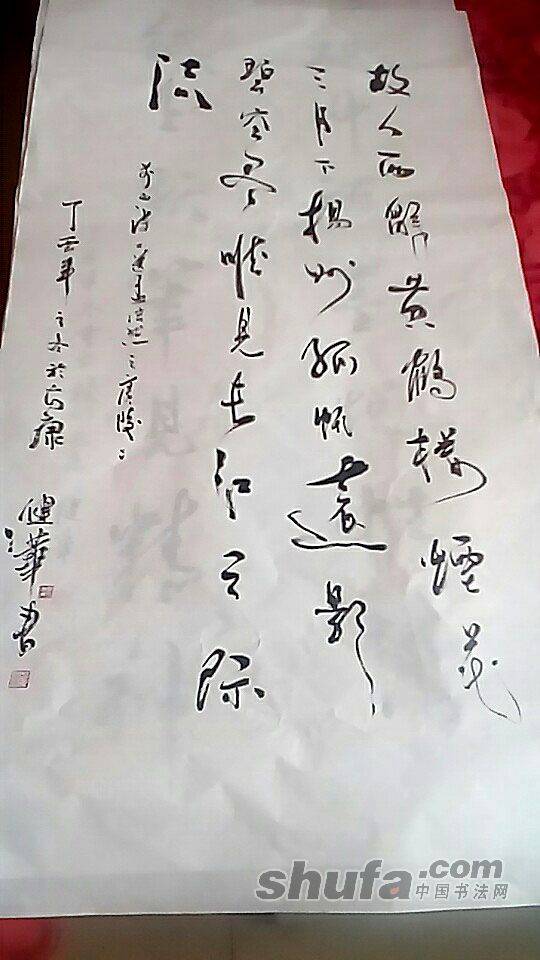 故人西辭黄鶴樓煙花
三月下揚州孤帆遠影
碧空尽唯見長江天际
流
送孟浩然之廣陵
丁酉年之冬於安康
健澕書
shufa.com
中国书法网